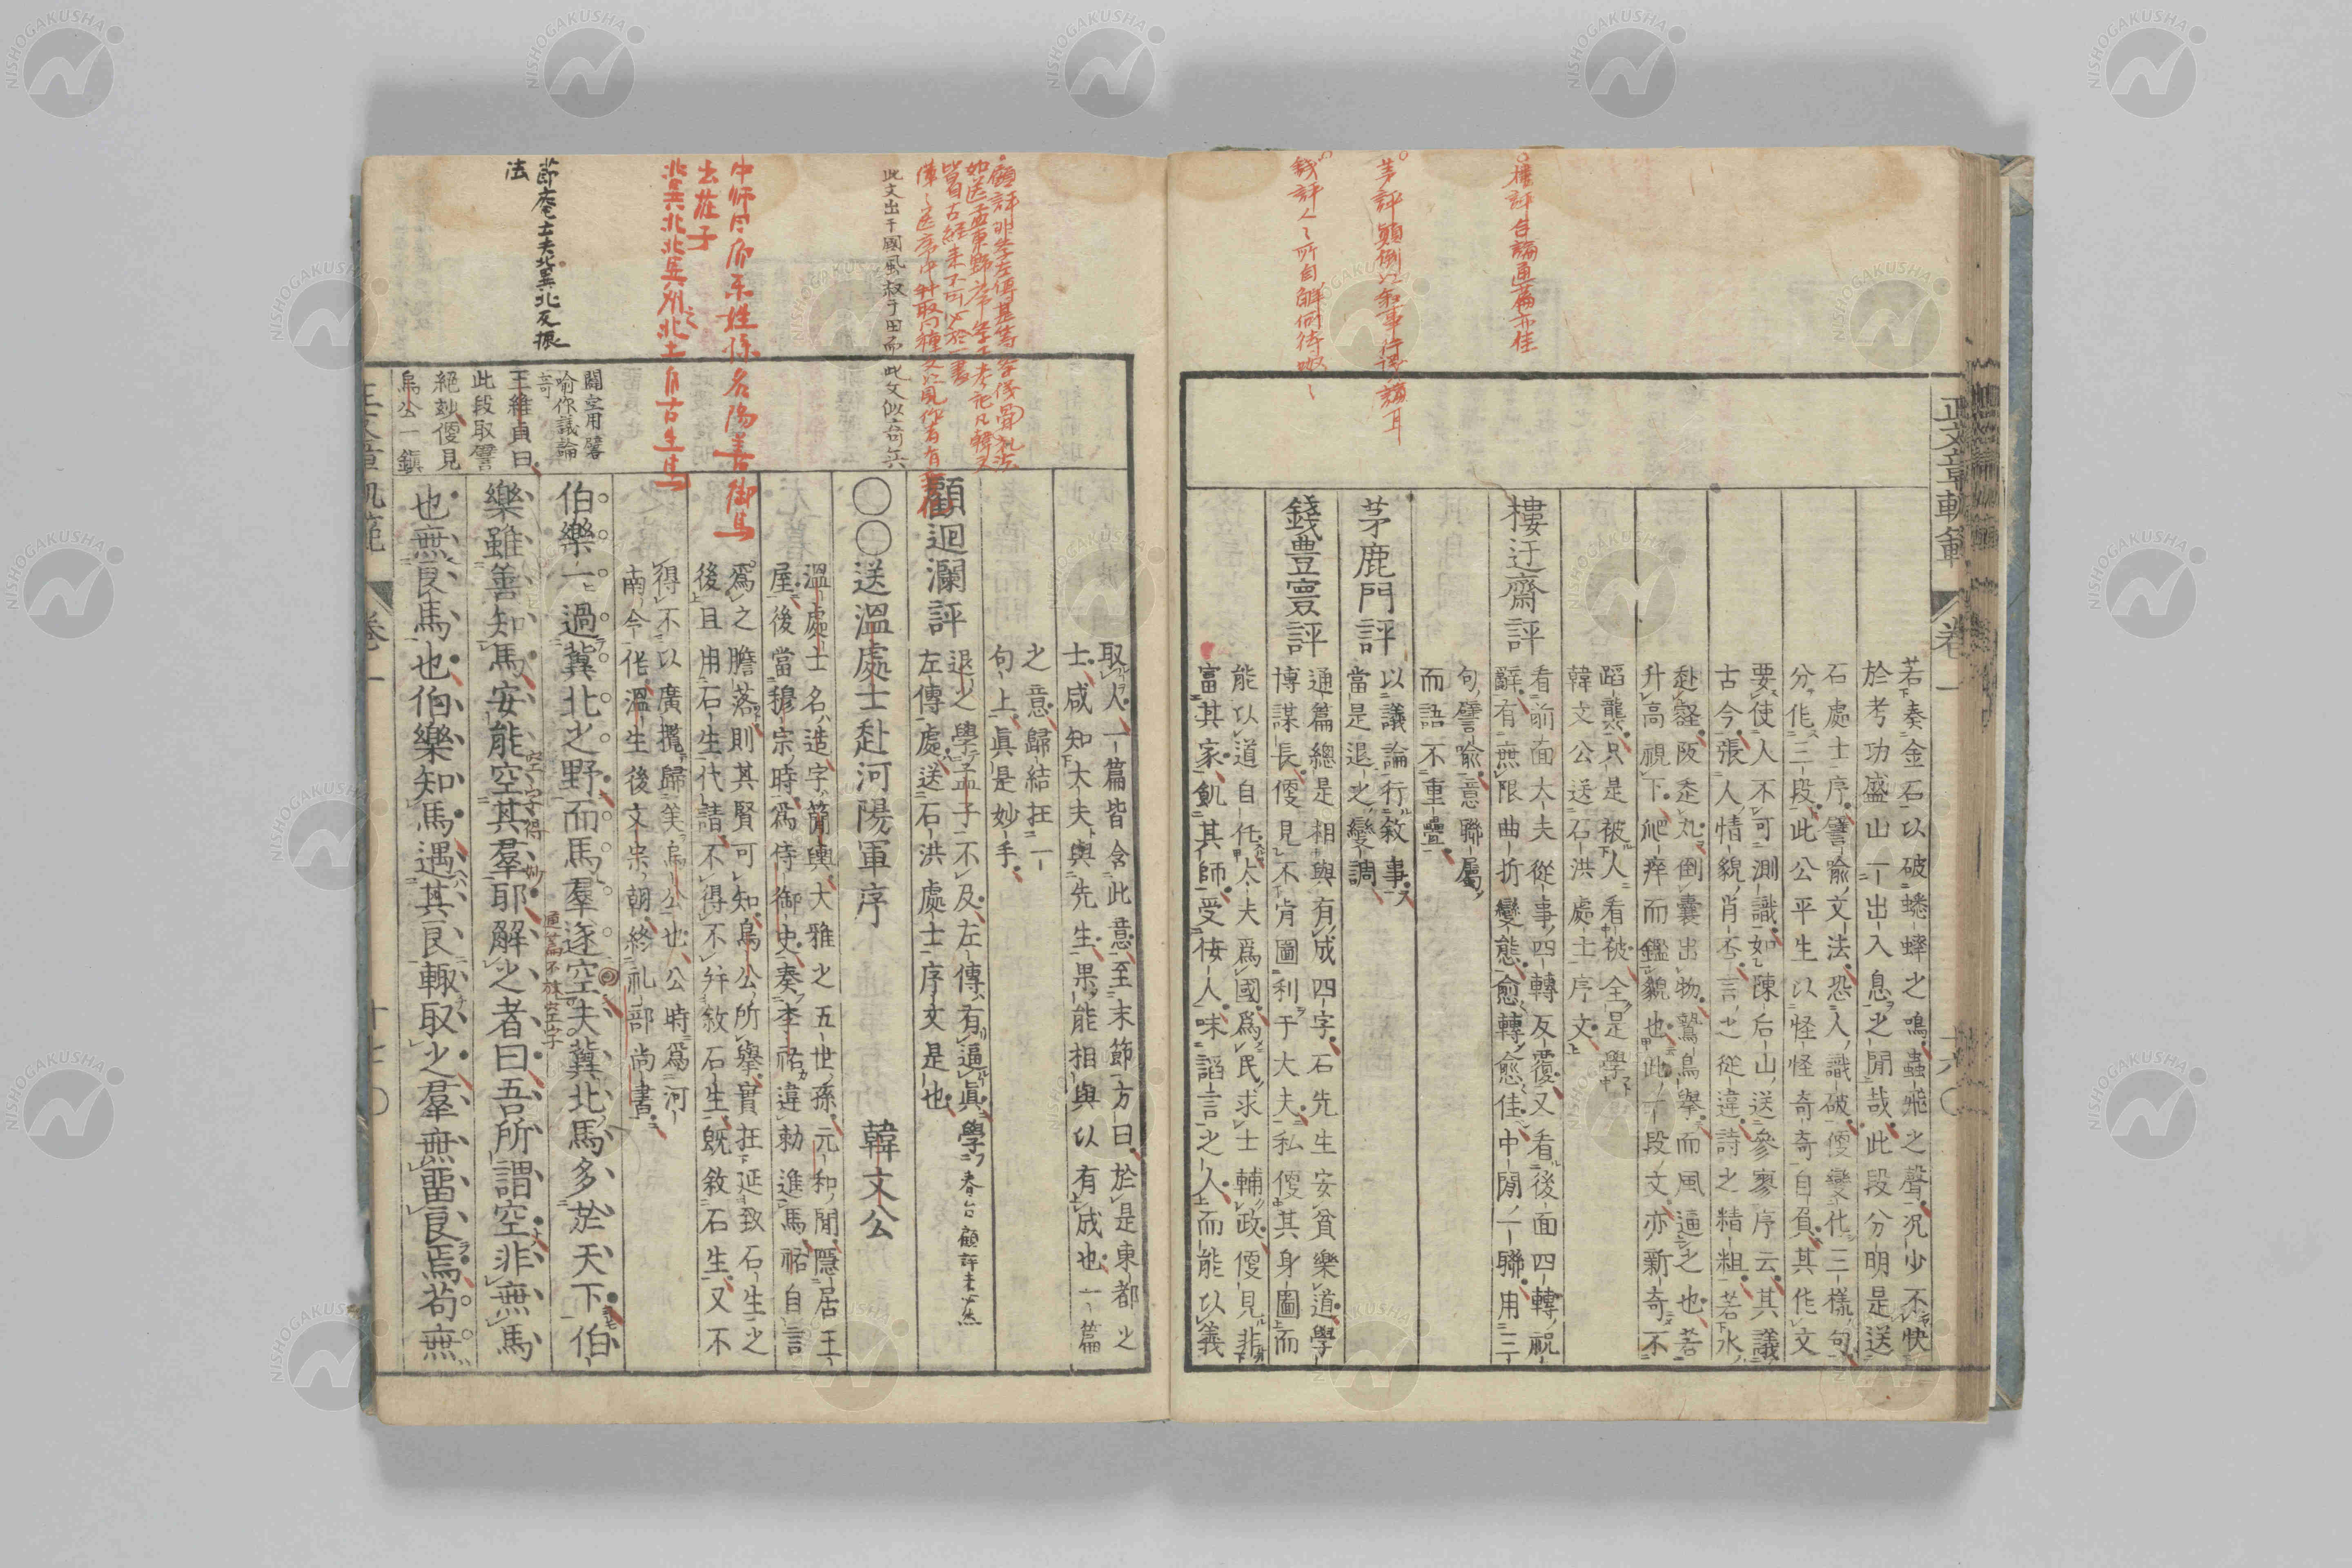 樓評 台論通篇亦佳
茅評 顛倒以敘事行議論耳
正文章軌範 卷一
若奏金石以破蟋蟀之鳴蟲飛之聲況少不快
於考功盛山一出入息之閒哉此段分明是送
石處士序譬喻文法恐人識破便變化三樣句
分作三段此公平生以怪怪奇奇自負其作文
要使人不可測識如陳后山送參寥序云其議
古今張人情貌肖否言之從違詩之精粗若水
赴壑阪走丸倒囊出物鷙鳥舉而風逼之也若
升高視下爬痒而鑑貌也此一段文亦新奇不
蹈襲只是被人看被全是學
韓文公送石洪處士序文
樓迂齋評
看前面大夫從事四轉反覆又看後面四轉祝
辭有無限曲折變態愈轉愈佳中閒一聯用三
句譬喻意聯屬
而語不重疊
茅鹿門評
以議論行敘事
當是退之變調
錢豐寰評
通篇總是相與有成四字石先生安貧樂道學
博謀長便見不肯圖利于大夫私便其身圖而
能以道自任大夫爲國爲民求士輔政便見非
富其家飢其師受侫人味諂言之人而能以義
取人一篇皆含此意至末節方曰於是東都之
士咸知大夫與先生果能相與以有成也一篇
之意歸結在一
句上眞是妙手
顧迴瀾評
退之學孟子不及左傳有逼眞
左傳處送石洪處士序文是也
此文出于國風叔于田而此文似奇兵
〇〇送溫處士赴河陽軍序
韓文公
溫處士名造字簡輿大雅之五世孫元和閒隱居王
屋後當穆宗時爲侍御史奏李祐違勅進馬祐自言
爲之膽落則其賢可知烏公所舉實在延致石生之
後且用石生代請不得不幷敘石生既敘石生又不
得不以廣攬歸美烏公也公時爲河
南今作溫生後文宗朝終礼部尚書
伯樂一過冀北之野而馬羣遂空夫冀北馬多於天下伯
樂雖善知馬安能空其羣耶解之者曰吾所謂空非無馬
也無良馬也伯樂知馬遇其良輒取之羣無畱良焉苟無
空字得妙
通篇不放空字
出莊子
節庵士夫冀北反振
法
闘空用譬
喻作議論
奇
王維貞曰
此段取譬
絕妙便見
烏公一鎭